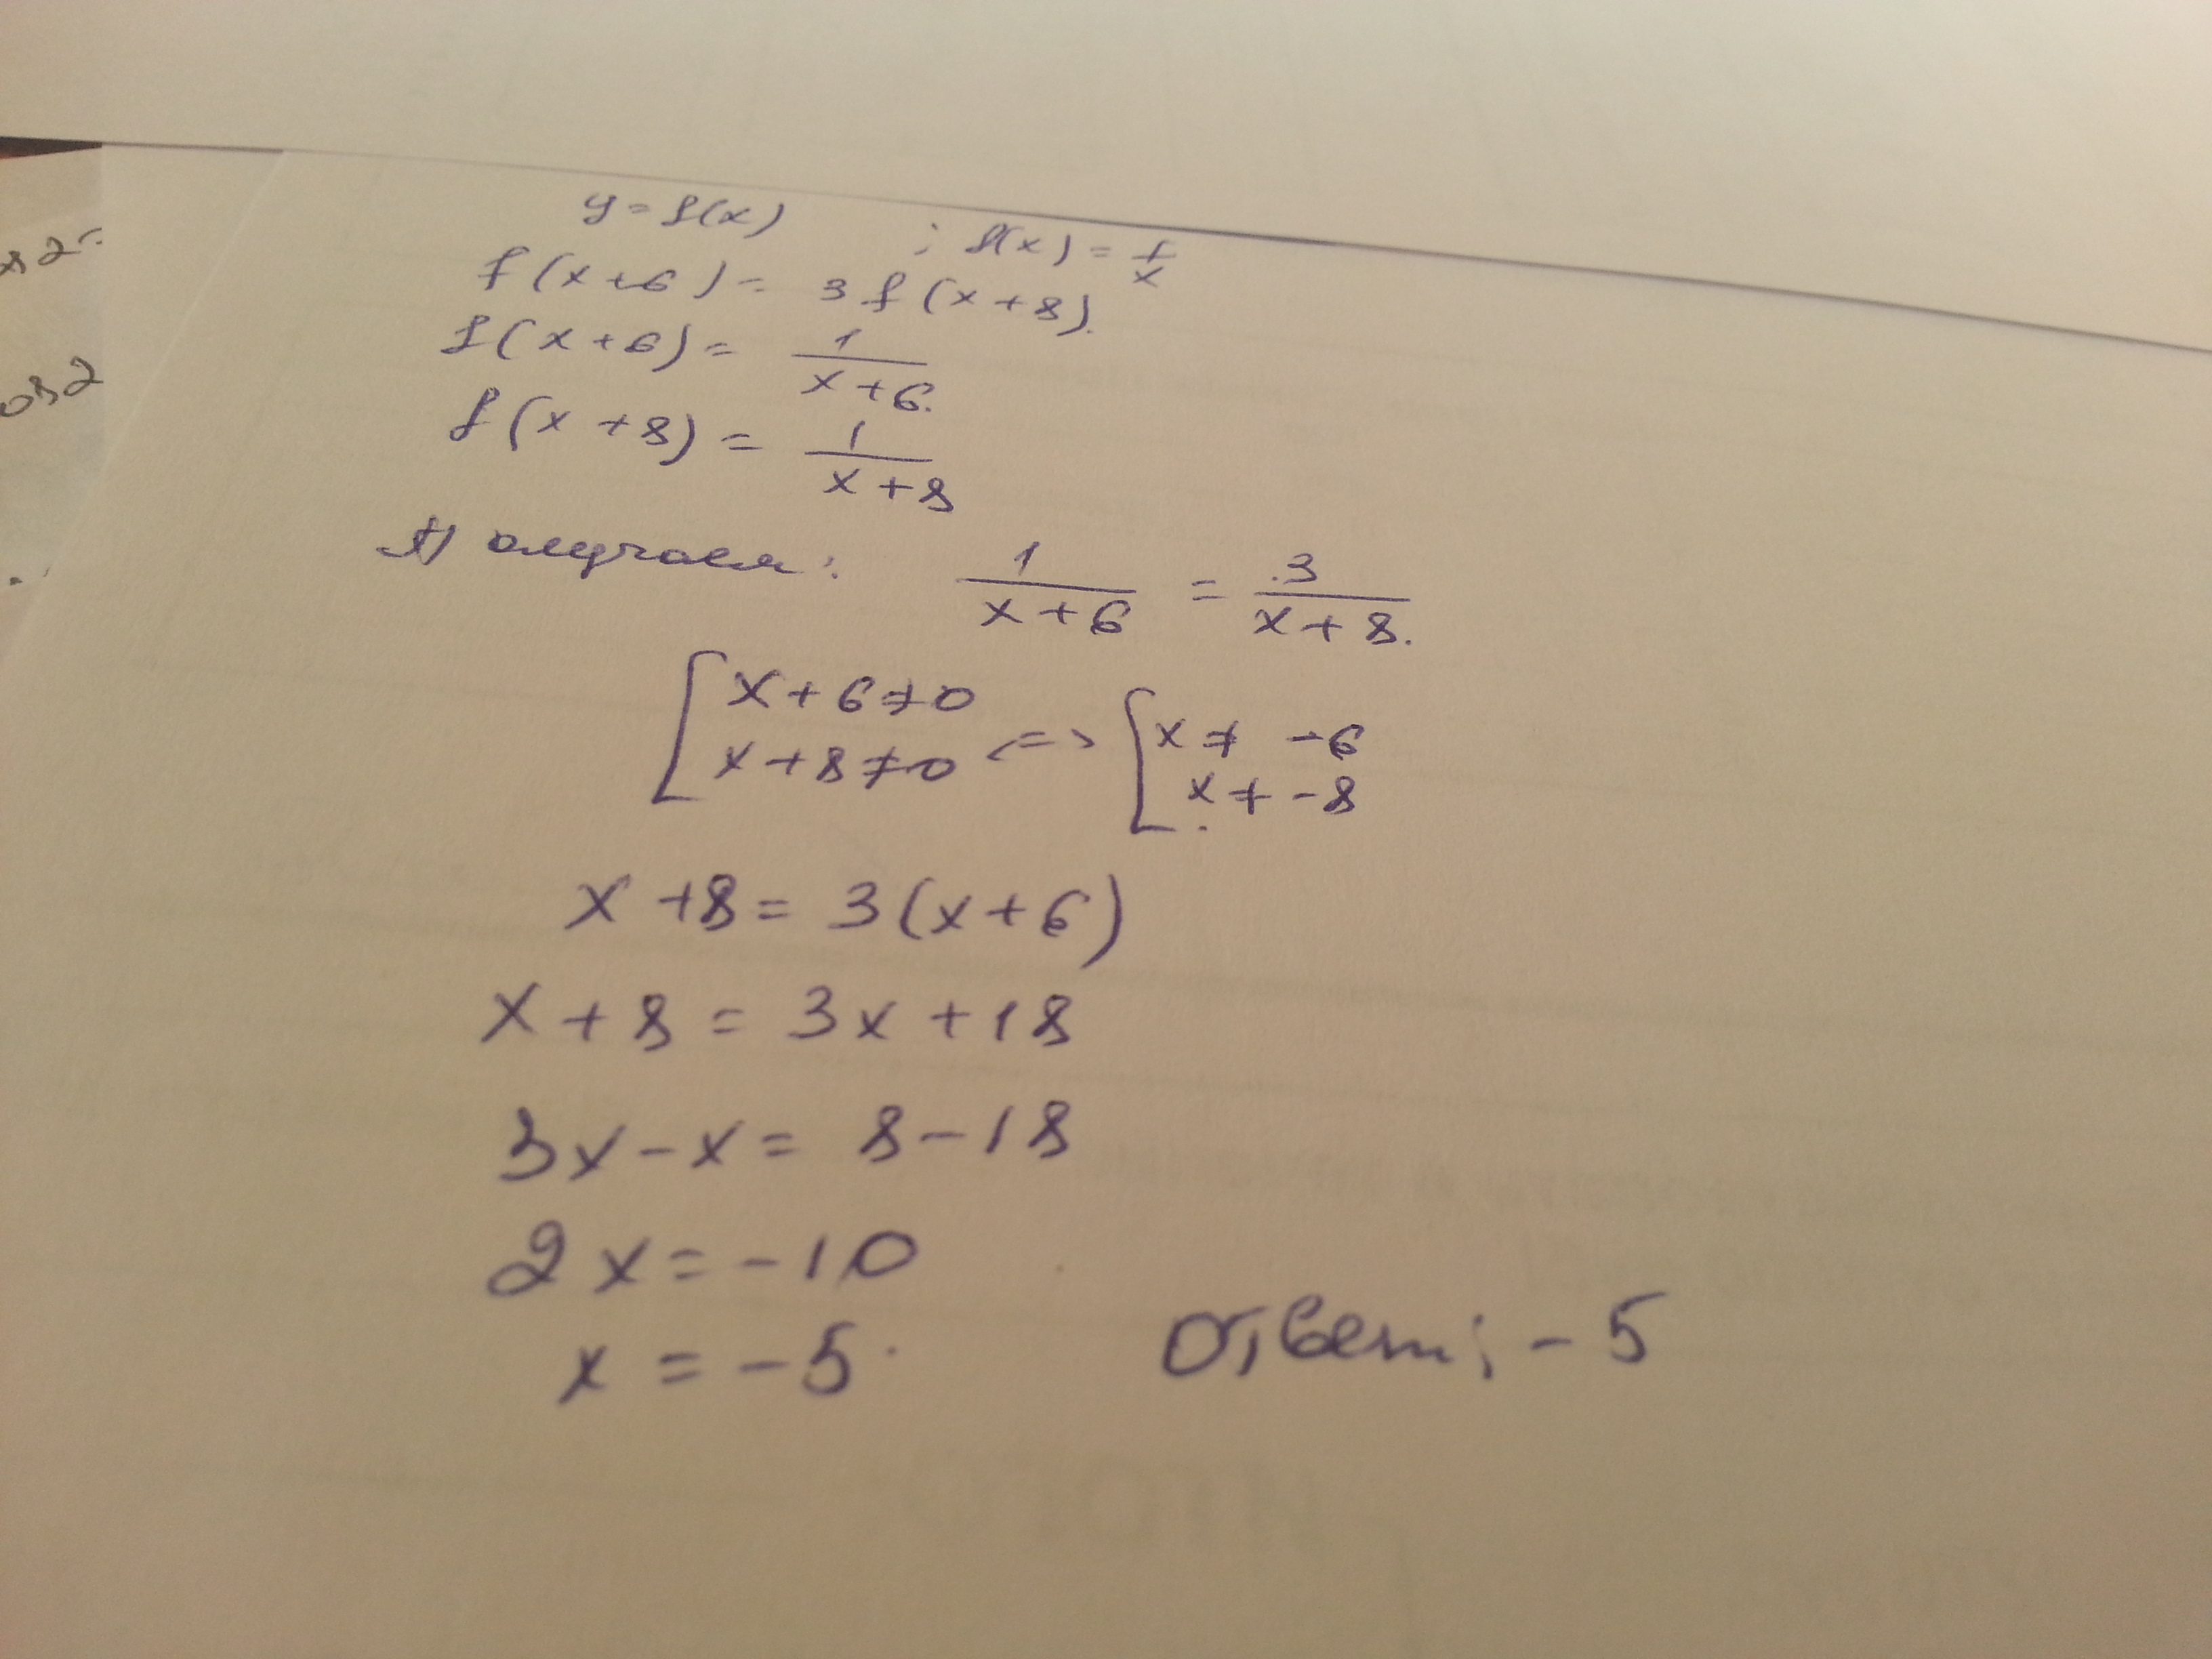 y = f(x) ; f(x) = 1/x
f(x+6) = 3f(x+8).
f(x+6) = 1/(x+6).
f(x+8) = 1/(x+8)
Получаем: 1/(x+6) = 3/(x+8).
[x+6≠0 <=> [x≠ -6
x+8≠0 x≠ -8
x+8 = 3(x+6)
x+8 = 3x+18
3x-x = 8-18
2x = -10
x = -5. Ответ: -5